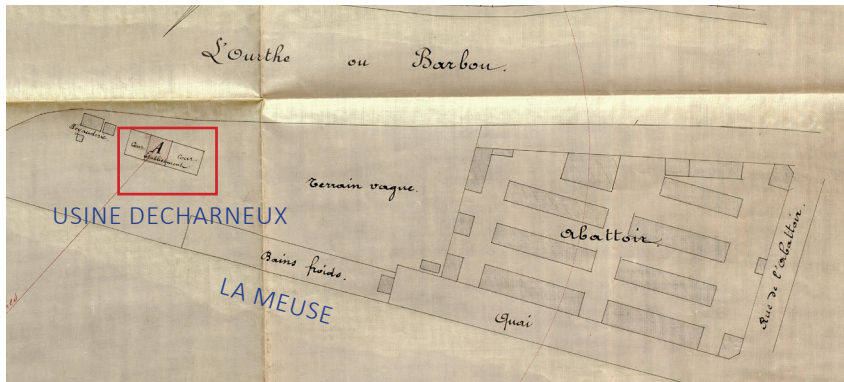 L'Ourthe ou Barbou.
Cour
A
établissement
Cour
Terrain vague.
USINE DECHARNEUX
Abattoir
Bains froids.
LA MEUSE
Quai
Rue de l'Abattoir.